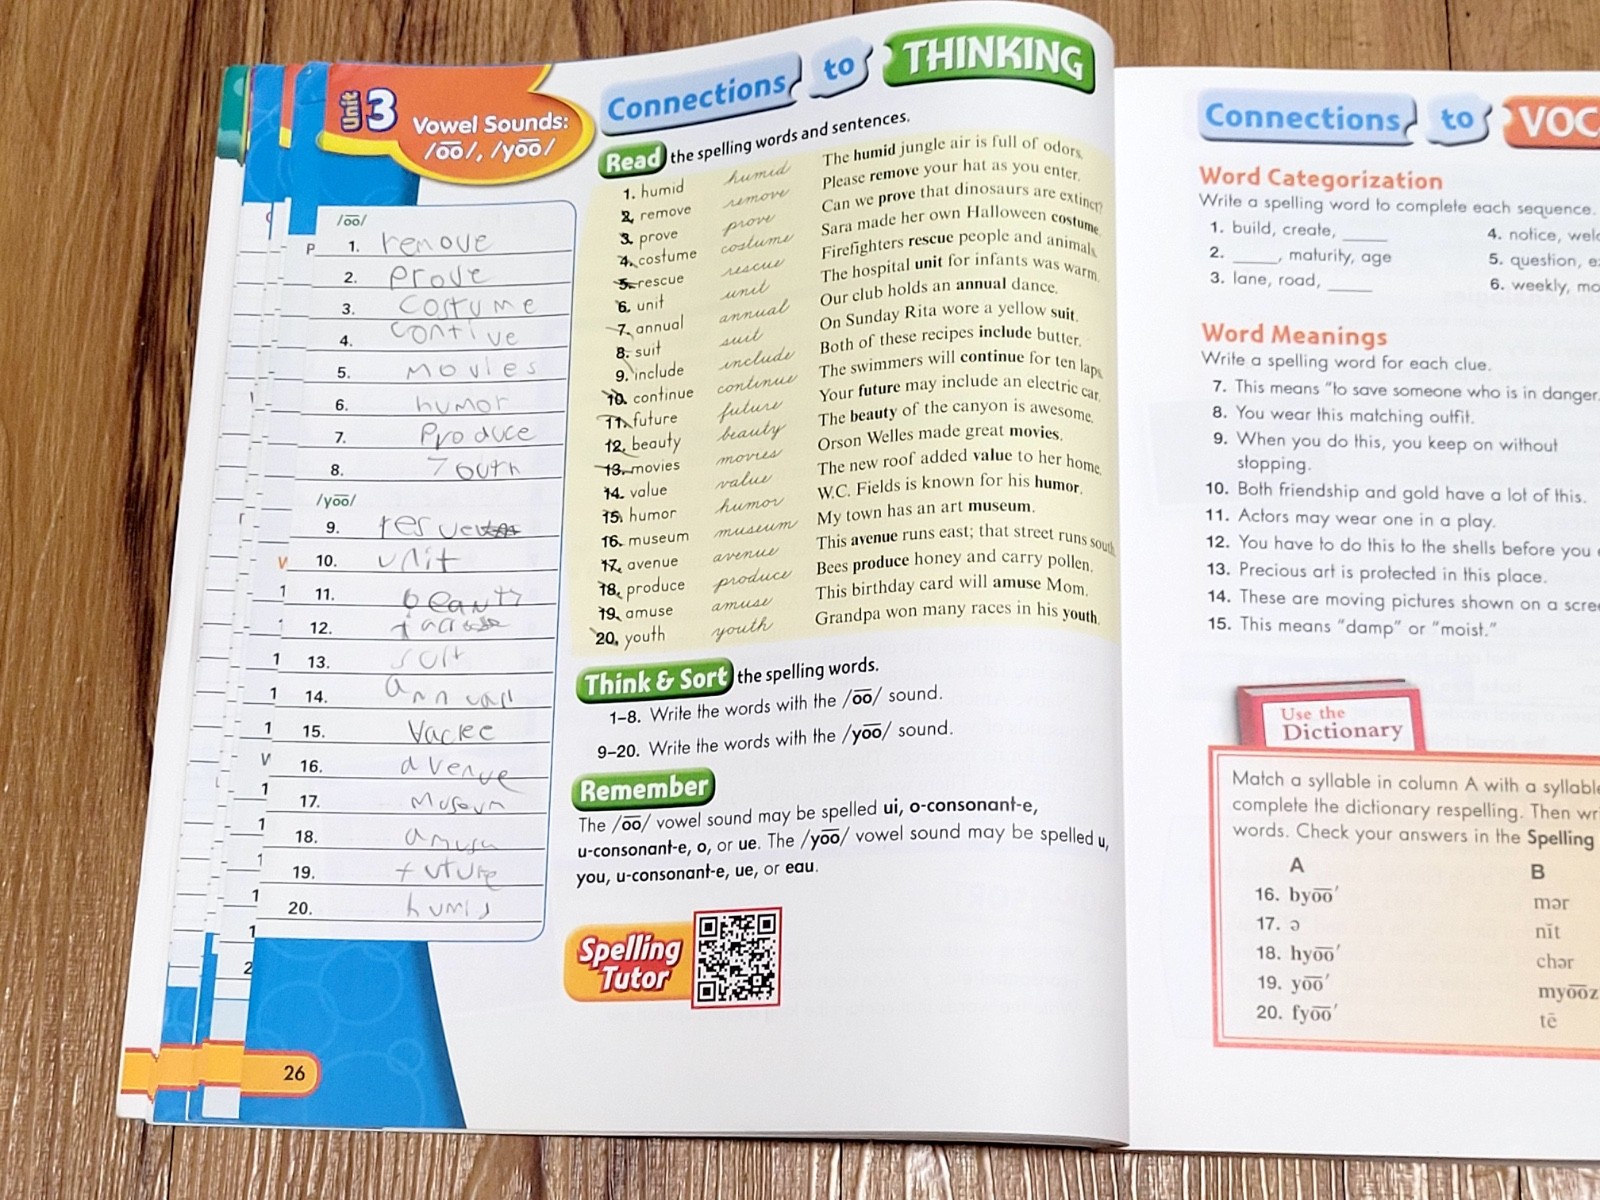 Unit 3
Vowel Sounds:
/o͞o/, /yo͞o/
Connections to THINKING
Read the spelling words and sentences.
1. humid humid The humid jungle air is full of odors.
2. remove remove Please remove your hat as you enter.
3. prove prove Can we prove that dinosaurs are extinct?
4. costume costume Sara made her own Halloween costume.
5. rescue rescue Firefighters rescue people and animals.
6. unit unit The hospital unit for infants was warm.
7. annual annual Our club holds an annual dance.
8. suit suit On Sunday Rita wore a yellow suit.
9. include include Both of these recipes include butter.
10. continue continue The swimmers will continue for ten laps.
11. future future Your future may include an electric car.
12. beauty beauty The beauty of the canyon is awesome.
13. movies movies Orson Welles made great movies.
14. value value The new roof added value to her home.
15. humor humor W.C. Fields is known for his humor.
16. museum museum My town has an art museum.
17. avenue avenue This avenue runs east; that street runs south.
18. produce produce Bees produce honey and carry pollen.
19. amuse amuse This birthday card will amuse Mom.
20. youth youth Grandpa won many races in his youth.
Think & Sort the spelling words.
1–8. Write the words with the /o͞o/ sound.
9–20. Write the words with the /yo͞o/ sound.
Remember
The /o͞o/ vowel sound may be spelled ui, o-consonant-e,
u-consonant-e, o, or ue. The /yo͞o/ vowel sound may be spelled u,
you, u-consonant-e, ue, or eau.
Spelling
Tutor
/o͞o/
1. remove
2. prove
3. costume
4. contive
5. movies
6. humor
7. produce
8. youth
/yo͞o/
9. resue
10. unit
11. beauty
12.
13. suit
14. annual
15.
16. avenue
17. museum
18. amuse
19. future
20. humid
26
Connections to VOC
Word Categorization
Write a spelling word to complete each sequence.
1. build, create, _____
2. _____, maturity, age
3. lane, road, _____
4. notice, welc
5. question, e
6. weekly, mo
Word Meanings
Write a spelling word for each clue.
7. This means "to save someone who is in danger.
8. You wear this matching outfit.
9. When you do this, you keep on without
stopping.
10. Both friendship and gold have a lot of this.
11. Actors may wear one in a play.
12. You have to do this to the shells before you
13. Precious art is protected in this place.
14. These are moving pictures shown on a scre
15. This means "damp" or "moist."
Use the
Dictionary
Match a syllable in column A with a syllable
complete the dictionary respelling. Then wri
words. Check your answers in the Spelling
A B
16. byo͞o′ mər
17. ə nĭt
18. hyo͞o′ chər
19. yo͞o′ myo͞oz
20. fyo͞o′ tē